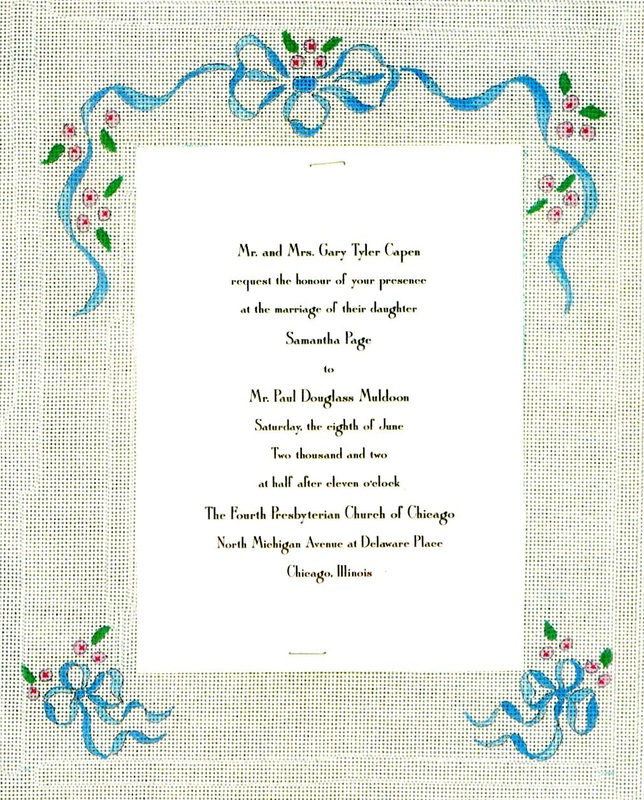 Mr. and Mrs. Gary Tyler Capen
request the honour of your presence
at the marriage of their daughter
Samantha Page
to
Mr. Paul Douglass Muldoon
Saturday, the eighth of June
Two thousand and two
at half after eleven o'clock
The Fourth Presbyterian Church of Chicago
North Michigan Avenue at Delaware Place
Chicago, Illinois